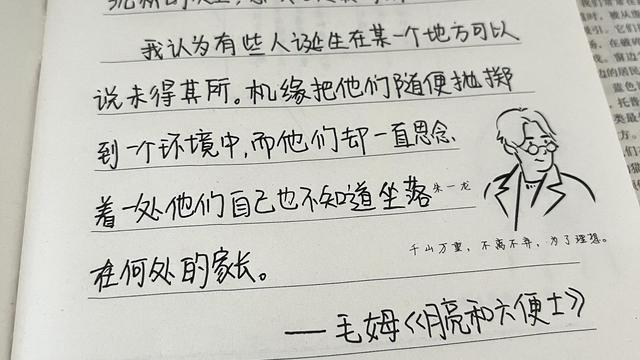 我认为有些人诞生在某一个地方可以
说未得其所。机缘把他们随便抛掷
到一个环境中,而他们却一直思念
着一处他们自己也不知道坐落
朱一龙
千山万重,不离不弃,为了理想。
在何处的家长。
——毛姆《月亮和六便士》